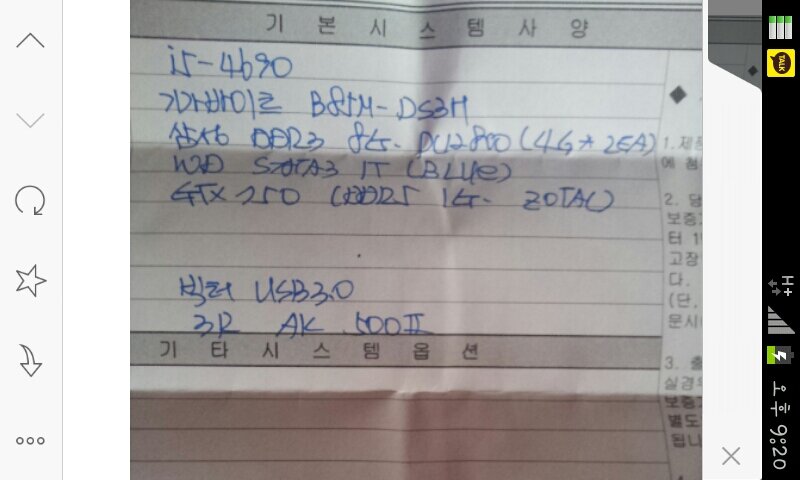 기 본 시 스 템 사 양
i5-4690
기가바이트 B85M-DS3H
삼성 DDR3 8G. PC12800 (4G*2EA)
WD SATA3 1T (BLUe)
GTX 750 DDR5 1G. ZOTAC)
빅터 USB3.0
3R AK 500II
기 타 시 스 템 옵 션
◆
1. 제품
에 첨
2. 당
보증
터 1
고장
다.
(단,
문시
3. 출
실경
보증
별도
됩니
TALK
H+
오후 9:20